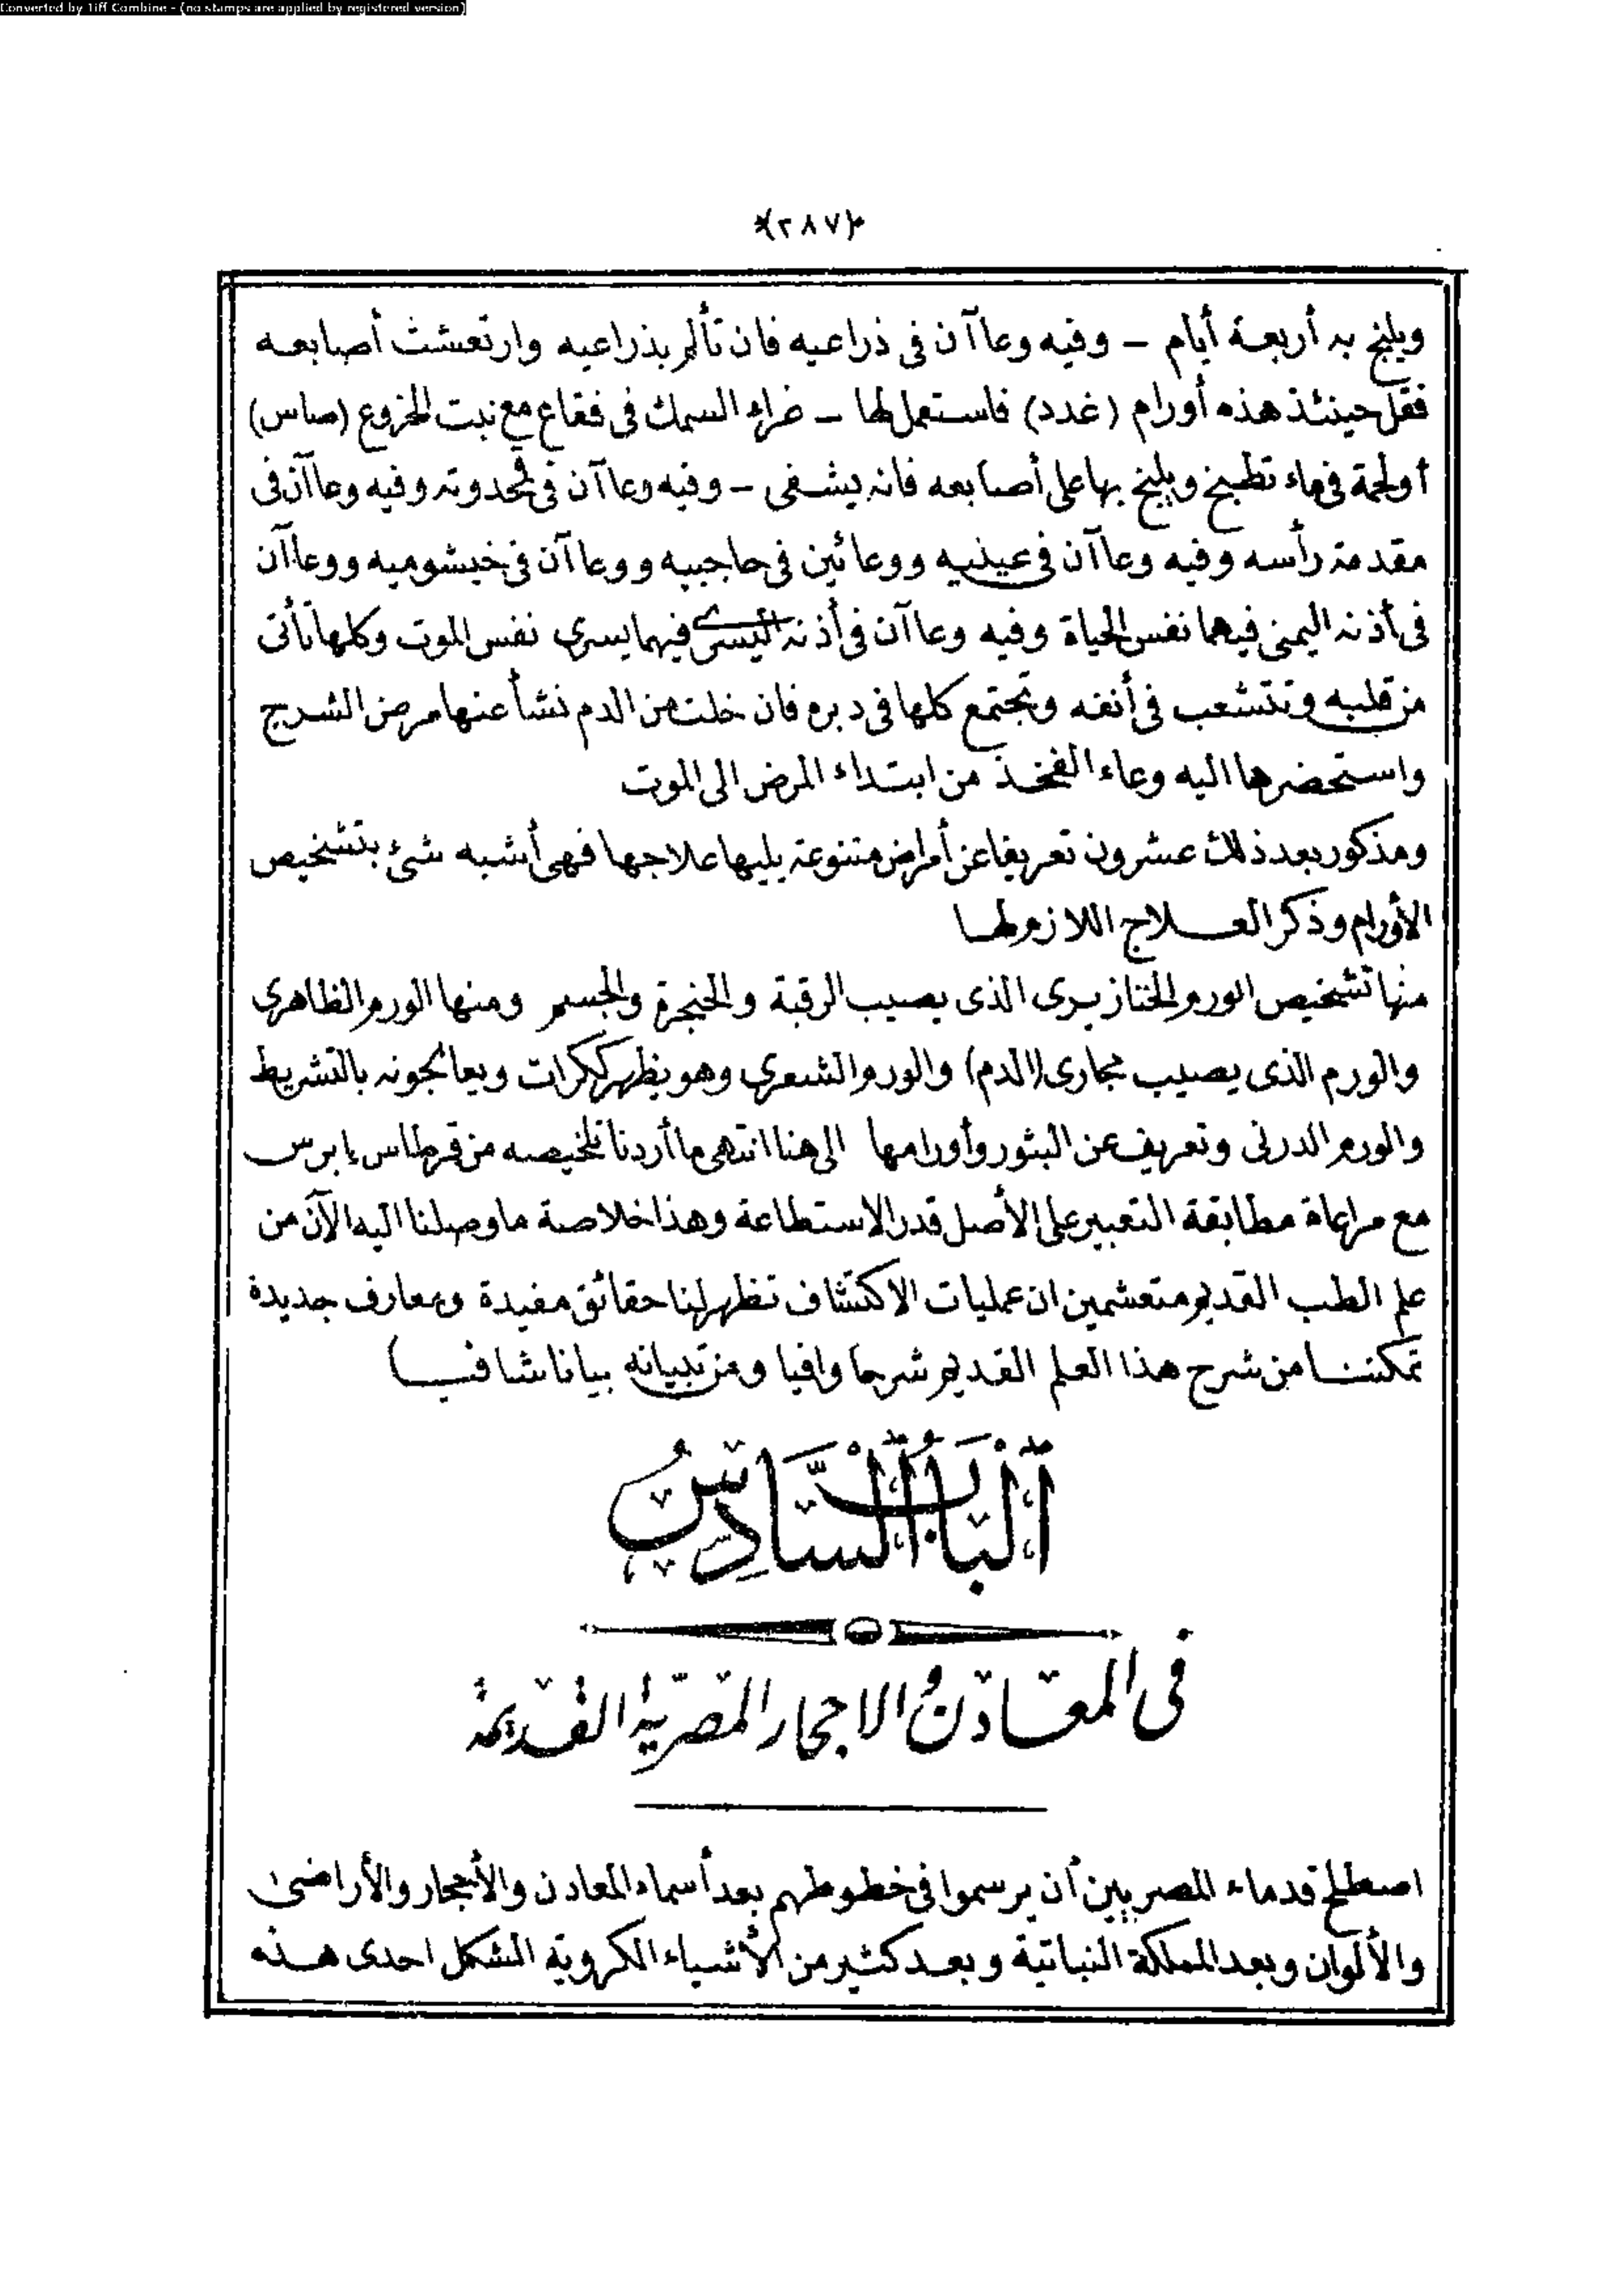 Converted by Tiff Combine - (no stamps are applied by registered version)
(٢٨٧)
ويلبخ به أربعة أيام – وفيه وعاآن فى ذراعيه فان تألم بذراعيه وارتعشت أصابعه
فقل حينئذ هذه أورام (غدد) فاستعمل لها – غراء السمك فى فقاع مع نبت الخروع (صاس)
أولحمة فى ماء تطبخ ويلبخ بها على أصابعه فانه يشفى – وفيه وعاآن فى قمحدوته وفيه وعاآن فى
مقدمة رأسه وفيه وعاآن فى عينيه ووعائين فى حاجبيه ووعاآن فى خيشوميه ووعاآن
فى أذنه اليمنى فيهما نفس الحياة وفيه وعاآن فى أذنه اليسرى فيهما يسرى نفس الموت وكلها تأتى
من قلبه وتتشعب فى أنفه وتجتمع كلها فى دبره فان خلت من الدم نشأ عنها مرض الشرج
واستحضرها اليه وعاء الفخذ من ابتداء المرض الى الموت
ومذكور بعد ذلك عشرون تعريفا عن أمراض متنوعة يليها علاجها فهى أشبه شئ بتشخيص
الأورام وذكر العلاج اللازم لها
منها تشخيص الورم الخنازيرى الذى يصيب الرقبة والحنجرة والجسم ومنها الورم الظاهرى
والورم الذى يصيب مجارى (الدم) والورم الشعرى وهو يظهر ككرات ويعالجونه بالتشريط
والورم الدرنى وتعريف عن البثور وأورامها الى هنا انتهى ما أردنا تلخيصه من قرطاس إبرس
مع مراعاة مطابقة التعبير على الأصل قدر الاستطاعة وهذا خلاصة ما وصلنا اليه الآن من
علم الطب القديم متعشمين ان عمليات الاكتشاف تظهر لنا حقائق مفيدة ومعارف جديدة
تمكننا من شرح هذا العلم القديم شرحا وافيا ومن تبيانه بيانا شافيا)
اَلْبَابُ السَّادِسُ
فى المعادن والاحجار المصرية القديمة
اصطلح قدماء المصريين أن يرسموا فى خطوطهم بعد أسماء المعادن والأحجار والأراضى
والألوان وبعد المملكة النباتية وبعد كثير من الأشياء الكروية الشكل احدى هذه